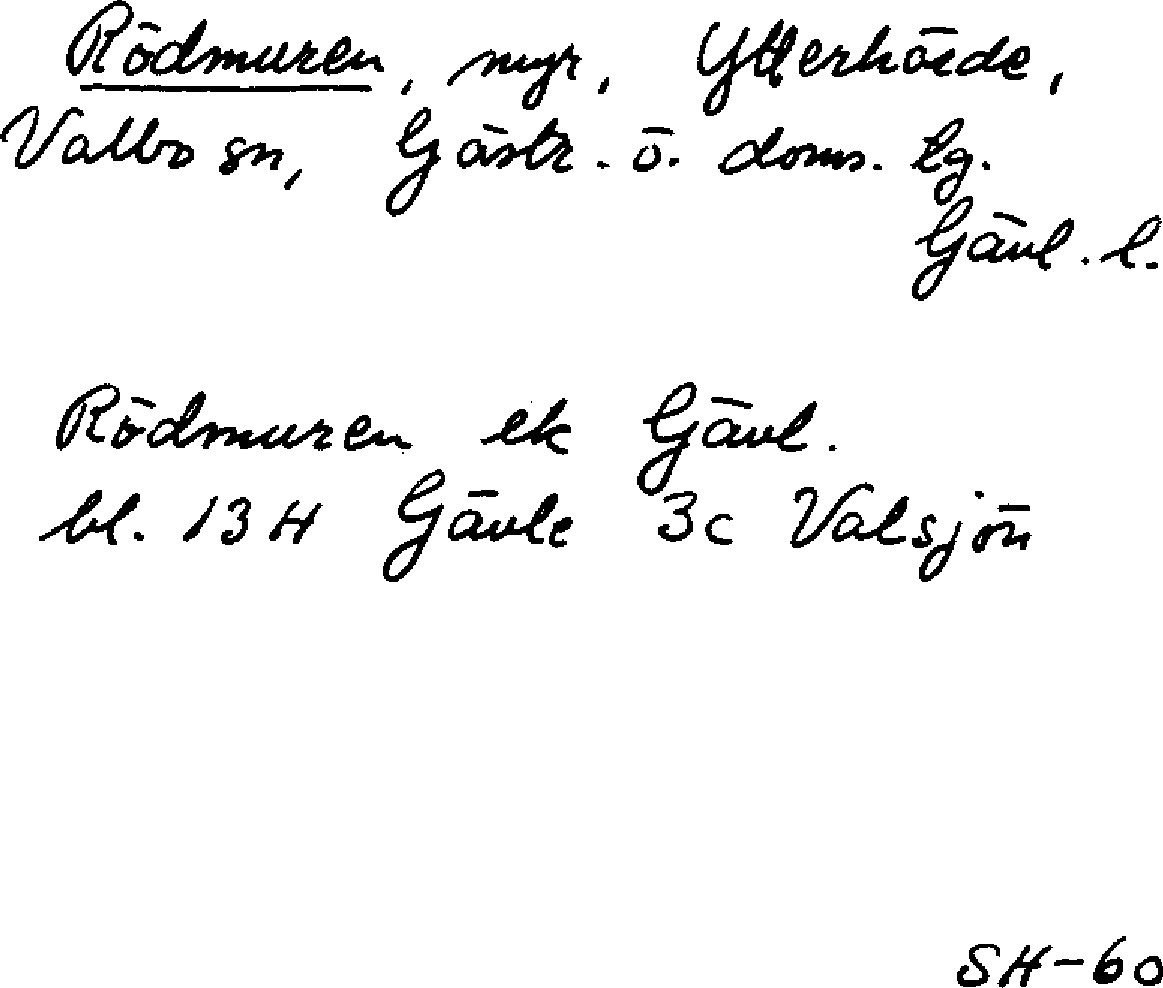 Rödmuren, myr, Ytterhärde,
Valbo sn, Gästr. ö. doms. lg.
Gävl. l.
Rödmuren ek Gävl.
bl. 13 H Gävle 3c Valsjön
SH-60